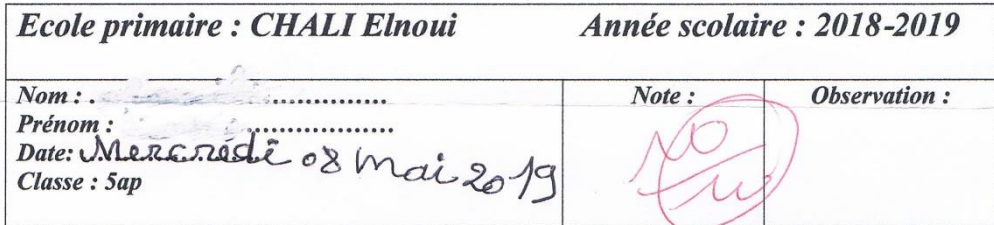 Ecole primaire : CHALI Elnoui Année scolaire : 2018-2019
Nom : . ...............
Prénom : ..................
Date: Mercredi 08 Mai 2019
Classe : 5ap
Note :
10
Observation :